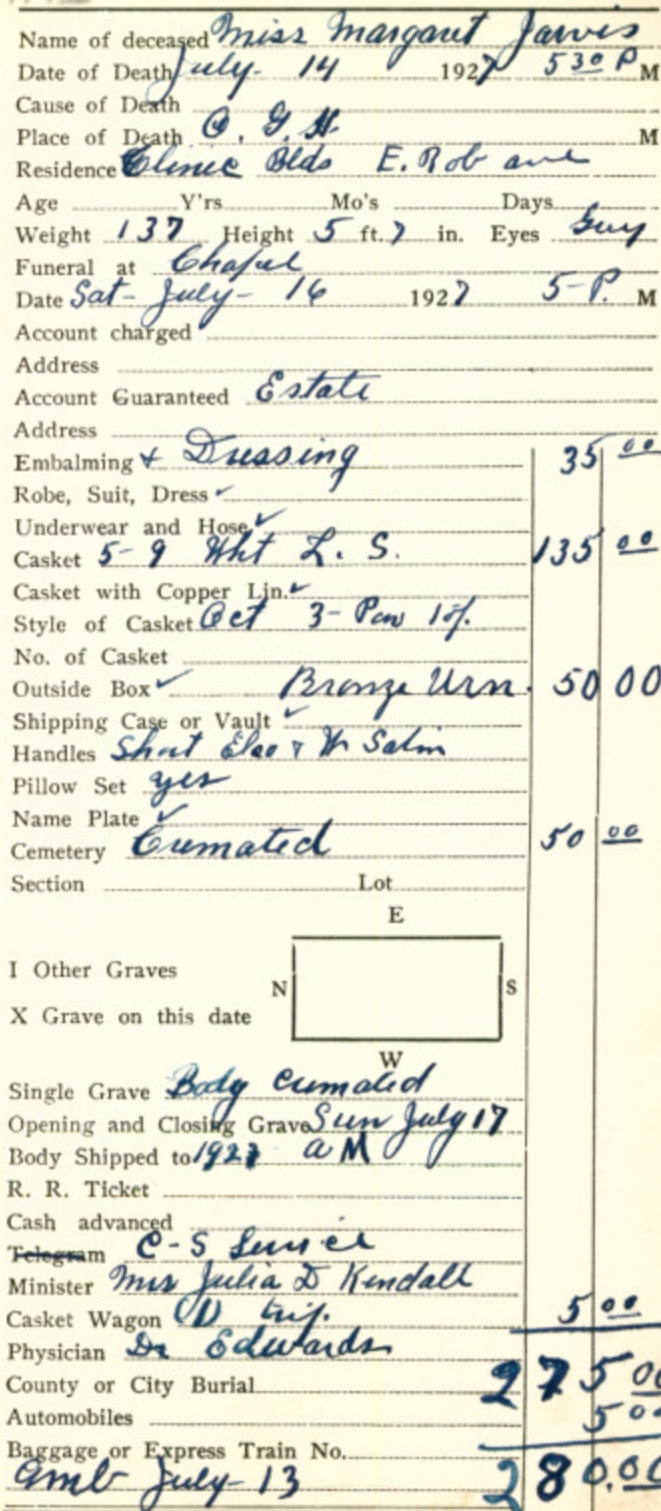 Name of deceased Miss Margaret Jarvis
Date of Death July - 14 1927 5 30 P M
Cause of Death
Place of Death O. G. H. M
Residence Clinic Blds E. Rob ave
Age Y'rs Mo's Days
Weight 137 Height 5 ft. 7 in. Eyes Grey
Funeral at Chapel
Date Sat - July - 16 1927 5 - P. M
Account charged
Address
Account Guaranteed Estate
Address
Embalming + Dressing 35 00
Robe, Suit, Dress ✓
Underwear and Hose ✓
Casket 5-9 Wht L. S. 135 00
Casket with Copper Lin. ✓
Style of Casket Oct 3 -
No. of Casket
Outside Box ✓ Bronze Urn. 50 00
Shipping Case or Vault ✓
Handles Short & Satin
Pillow Set yes
Name Plate ✓
Cemetery Cremated 50 00
Section Lot
E
I Other Graves
N S
X Grave on this date
W
Single Grave Body cremated
Opening and Closing Grave Sun July 17
Body Shipped to 1927 a M
R. R. Ticket
Cash advanced
Telegram C-S Service
Minister Mrs Julia D Kendall
Casket Wagon trip. 5 00
Physician Dr Edwards
County or City Burial 275 00
Automobiles 5 00
Baggage or Express Train No.
Amb July - 13 280.00